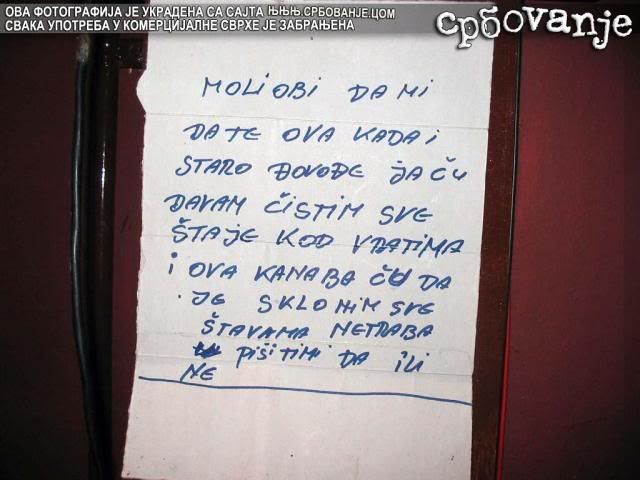 ОВА ФОТОГРАФИЈА ЈЕ УКРАДЕНА СА САЈТА ЊЊЊ.СРБОВАЊЕ.ЦОМ
СВАКА УПОТРЕБА У КОМЕРЦИЈАЛНЕ СВРХЕ ЈЕ ЗАБРАЊЕНА
србovanje
MOLIOBI DA MI
DATE OVA KADA i
STARO ĐOVOĐE JAČU
DAVAM ČISTIM SVE
ŠTAJE KOD VRATIMA
i OVA KANABA ČU DA
JE SKLONIM SVE
ŠTAVAMA NETRABA
PIŠITIMI DA ILI
NE